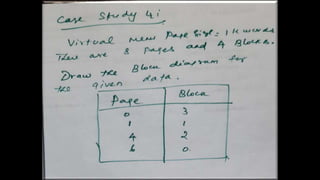 Case Study 4:
Virtual mem Page Size = 1K words
There are 8 Pages and 4 Blocks.
Draw the Block diagram for
the given data.
Page Block
0 3
1 1
4 2
6 0